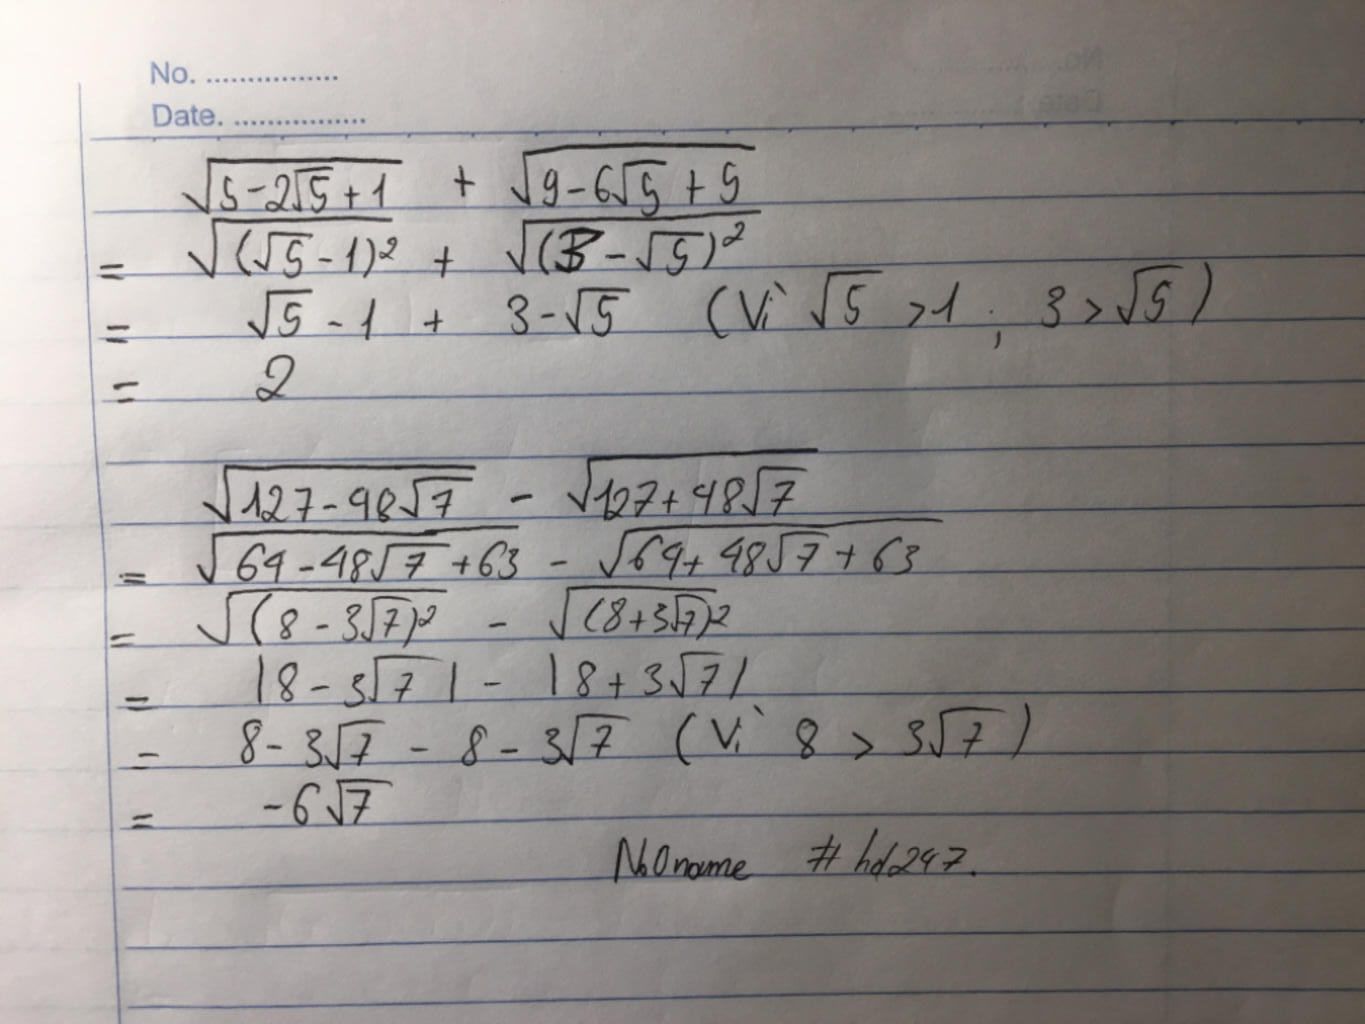 No. ................
Date. ................
√(5-2√5+1) + √(9-6√5+5)
= √((√5-1)²) + √((3-√5)²)
= √5-1 + 3-√5 (Vì √5 >1 ; 3>√5)
= 2
√(127-48√7) - √(127+48√7)
= √(64-48√7+63) - √(64+48√7+63)
= √((8-3√7)²) - √((8+3√7)²)
= |8-3√7| - |8+3√7|
= 8-3√7 - 8-3√7 (Vì 8 > 3√7)
= -6√7
No0name # hd247.